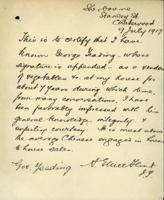 Stanley St
Collarwood
9 July 1917
This is to certify that I have
known George Yeading whose
signature is appended - as a vendor
of vegetables &c. at my house for
about 7 years during which time,
from many conversations, I have
been favorably impressed with his
general knowledge, integrity &
conduct. It is most above
the average Chinese engaged in house
to house sale.
Geo. Yeading
J.P.